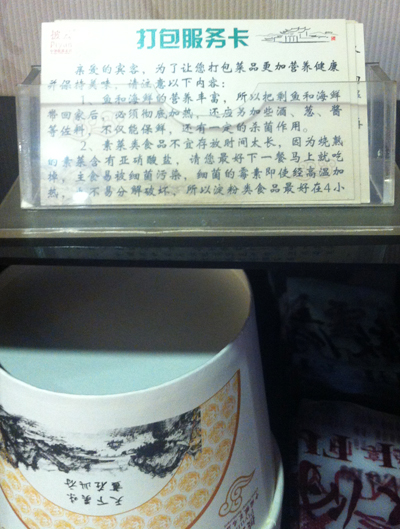 打包服务卡
亲爱的宾客、为了让您打包菜品更加营养健康
并保持美味、请注意以下内容：
1、鱼和海鲜的营养丰富，所以把剩鱼和海鲜
带回家后，必须彻底加热，还应为加些酒、葱、酱
等佐料，不仅能保鲜，还有一定的杀菌作用。
2、素菜类食品不宜存放时间太长，因为烧熟
的素菜含有亚硝酸盐，请您最好下一餐马上就吃
掉，主食易被细菌污染，细菌的毒素即使经高温加
热，也不易分解破坏，所以淀粉类食品最好在4小